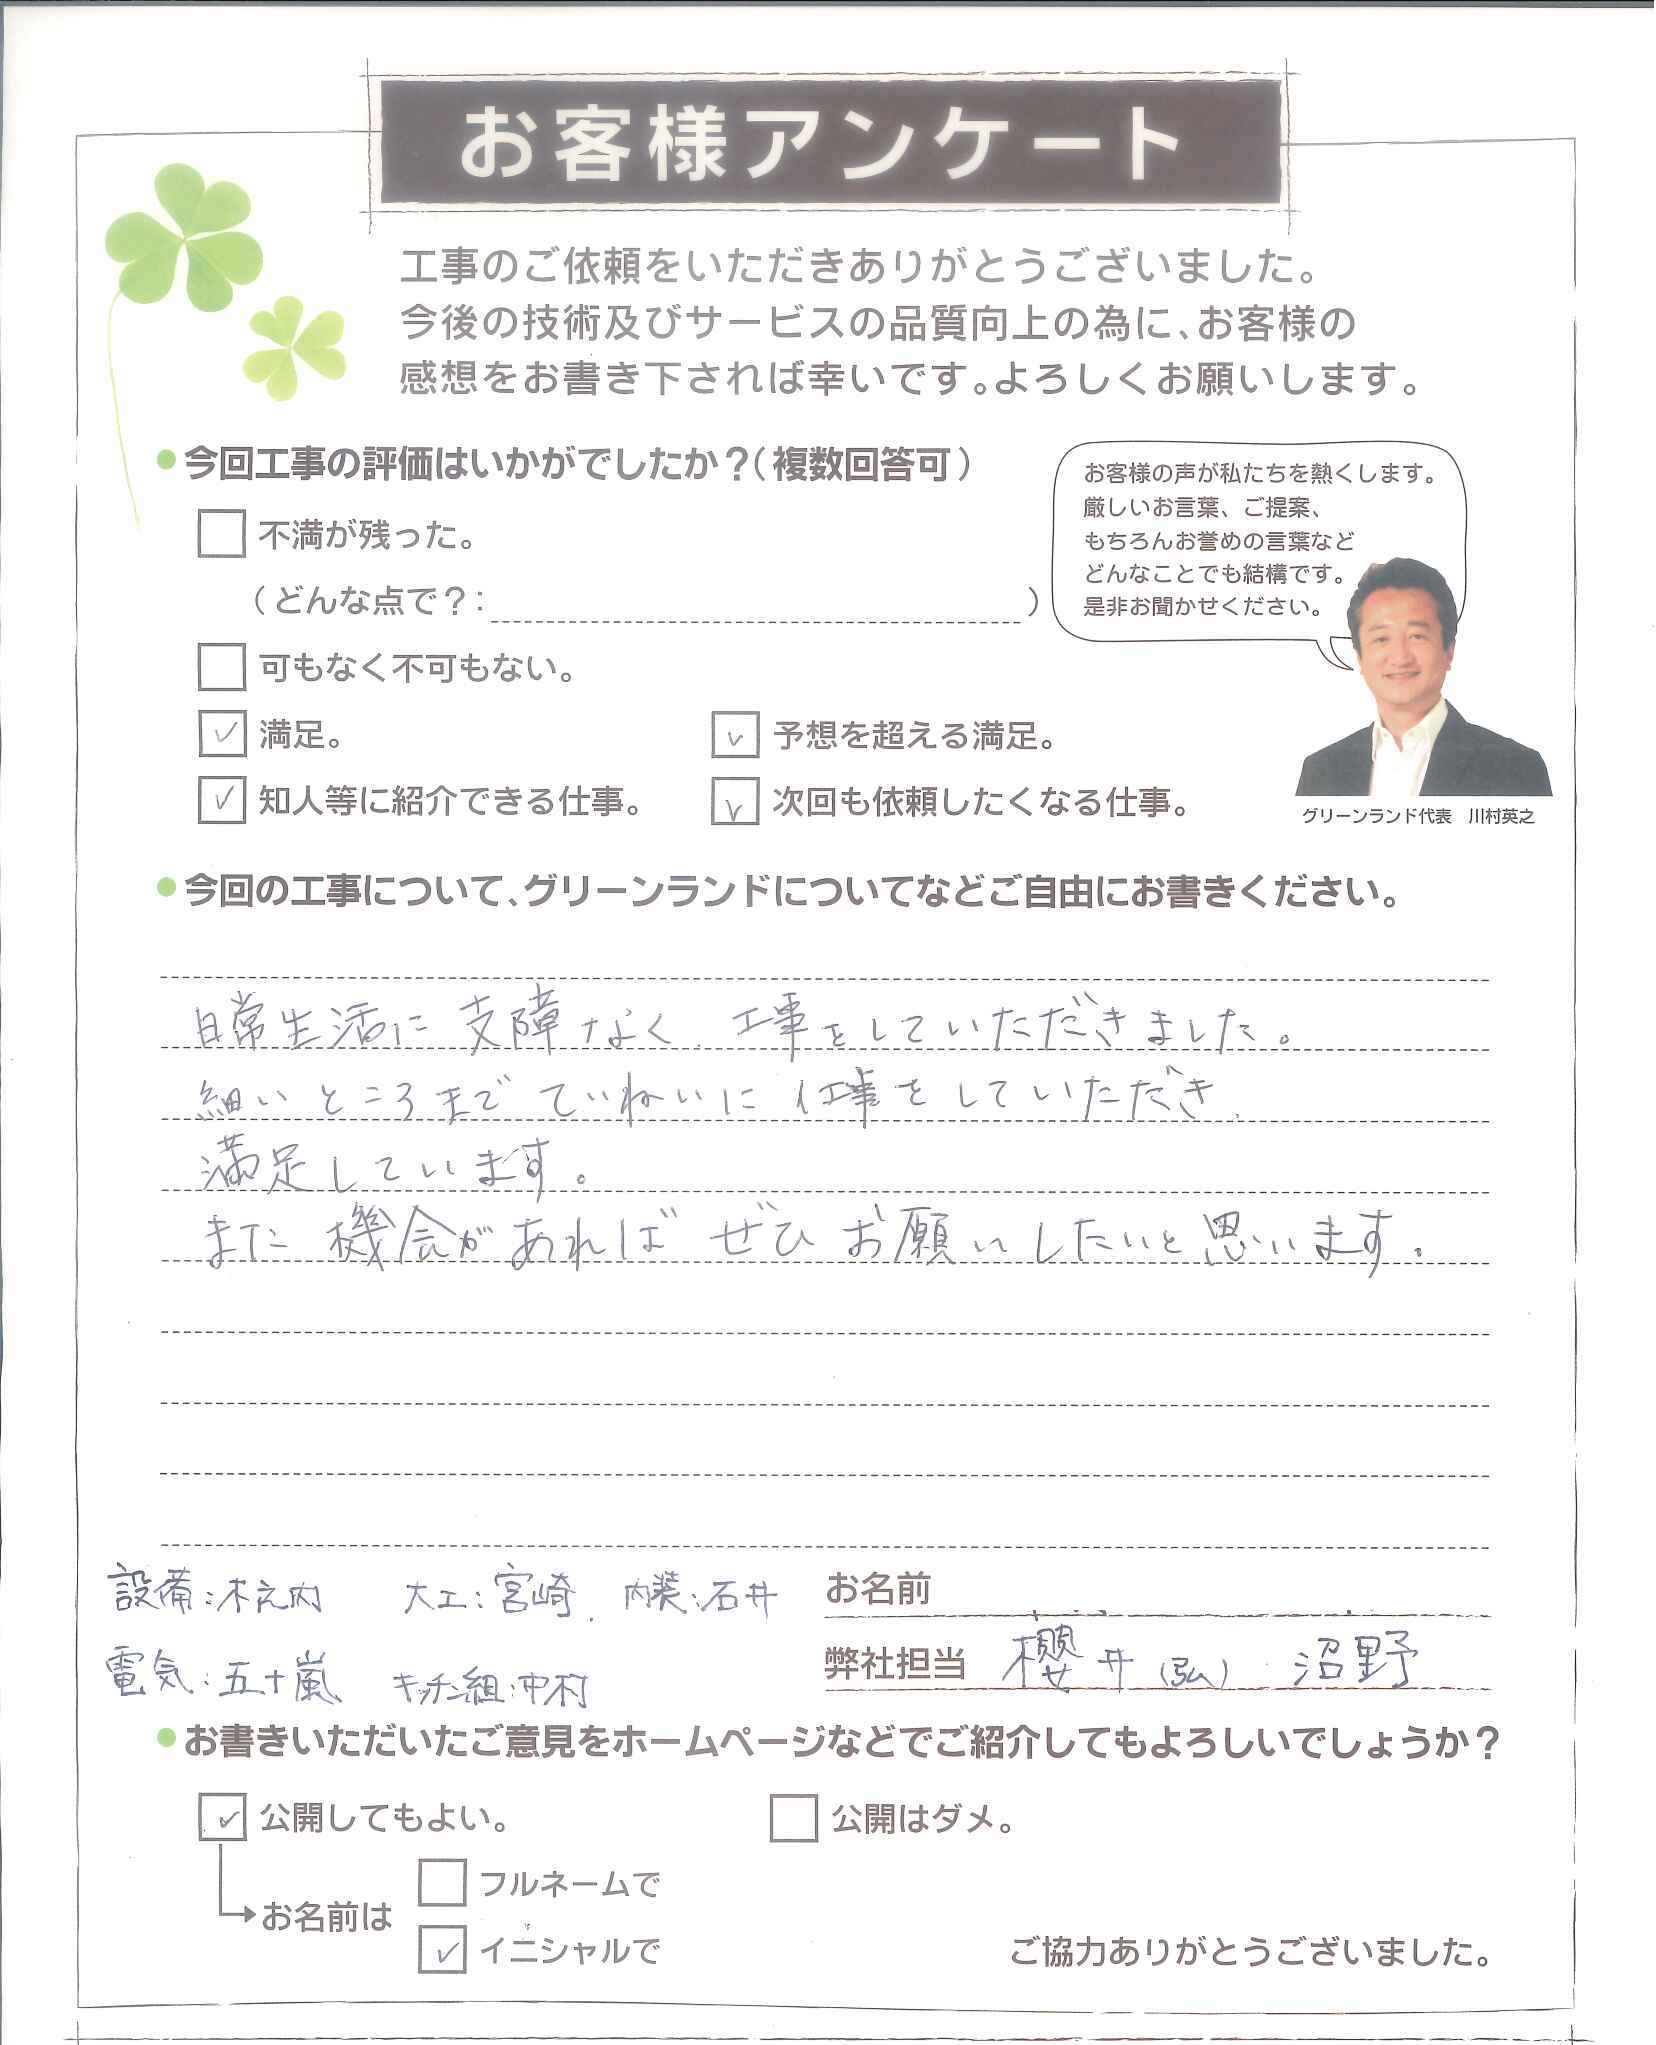 お客様アンケート
工事のご依頼をいただきありがとうございました。
今後の技術及びサービスの品質向上の為に、お客様の
感想をお書き下されば幸いです。よろしくお願いします。
今回工事の評価はいかがでしたか？（複数回答可）
不満が残った。
（どんな点で？： ）
可もなく不可もない。
満足。
予想を超える満足。
知人等に紹介できる仕事。
次回も依頼したくなる仕事。
お客様の声が私たちを熱くします。
厳しいお言葉、ご提案、
もちろんお誉めの言葉など
どんなことでも結構です。
是非お聞かせください。
グリーンランド代表　川村英之
今回の工事について、グリーンランドについてなどご自由にお書きください。
日常生活に支障なく、工事をしていただきました。
細いところまでていねいに仕事をしていただき、
満足しています。
また機会があればぜひお願いしたいと思います。
設備：木之内　大工：宮崎　内装：石井
お名前
電気：五十嵐　キッチン組：中村
弊社担当　櫻井（弘）　沼野
お書きいただいたご意見をホームページなどでご紹介してもよろしいでしょうか？
公開してもよい。
公開はダメ。
お名前は
フルネームで
イニシャルで
ご協力ありがとうございました。